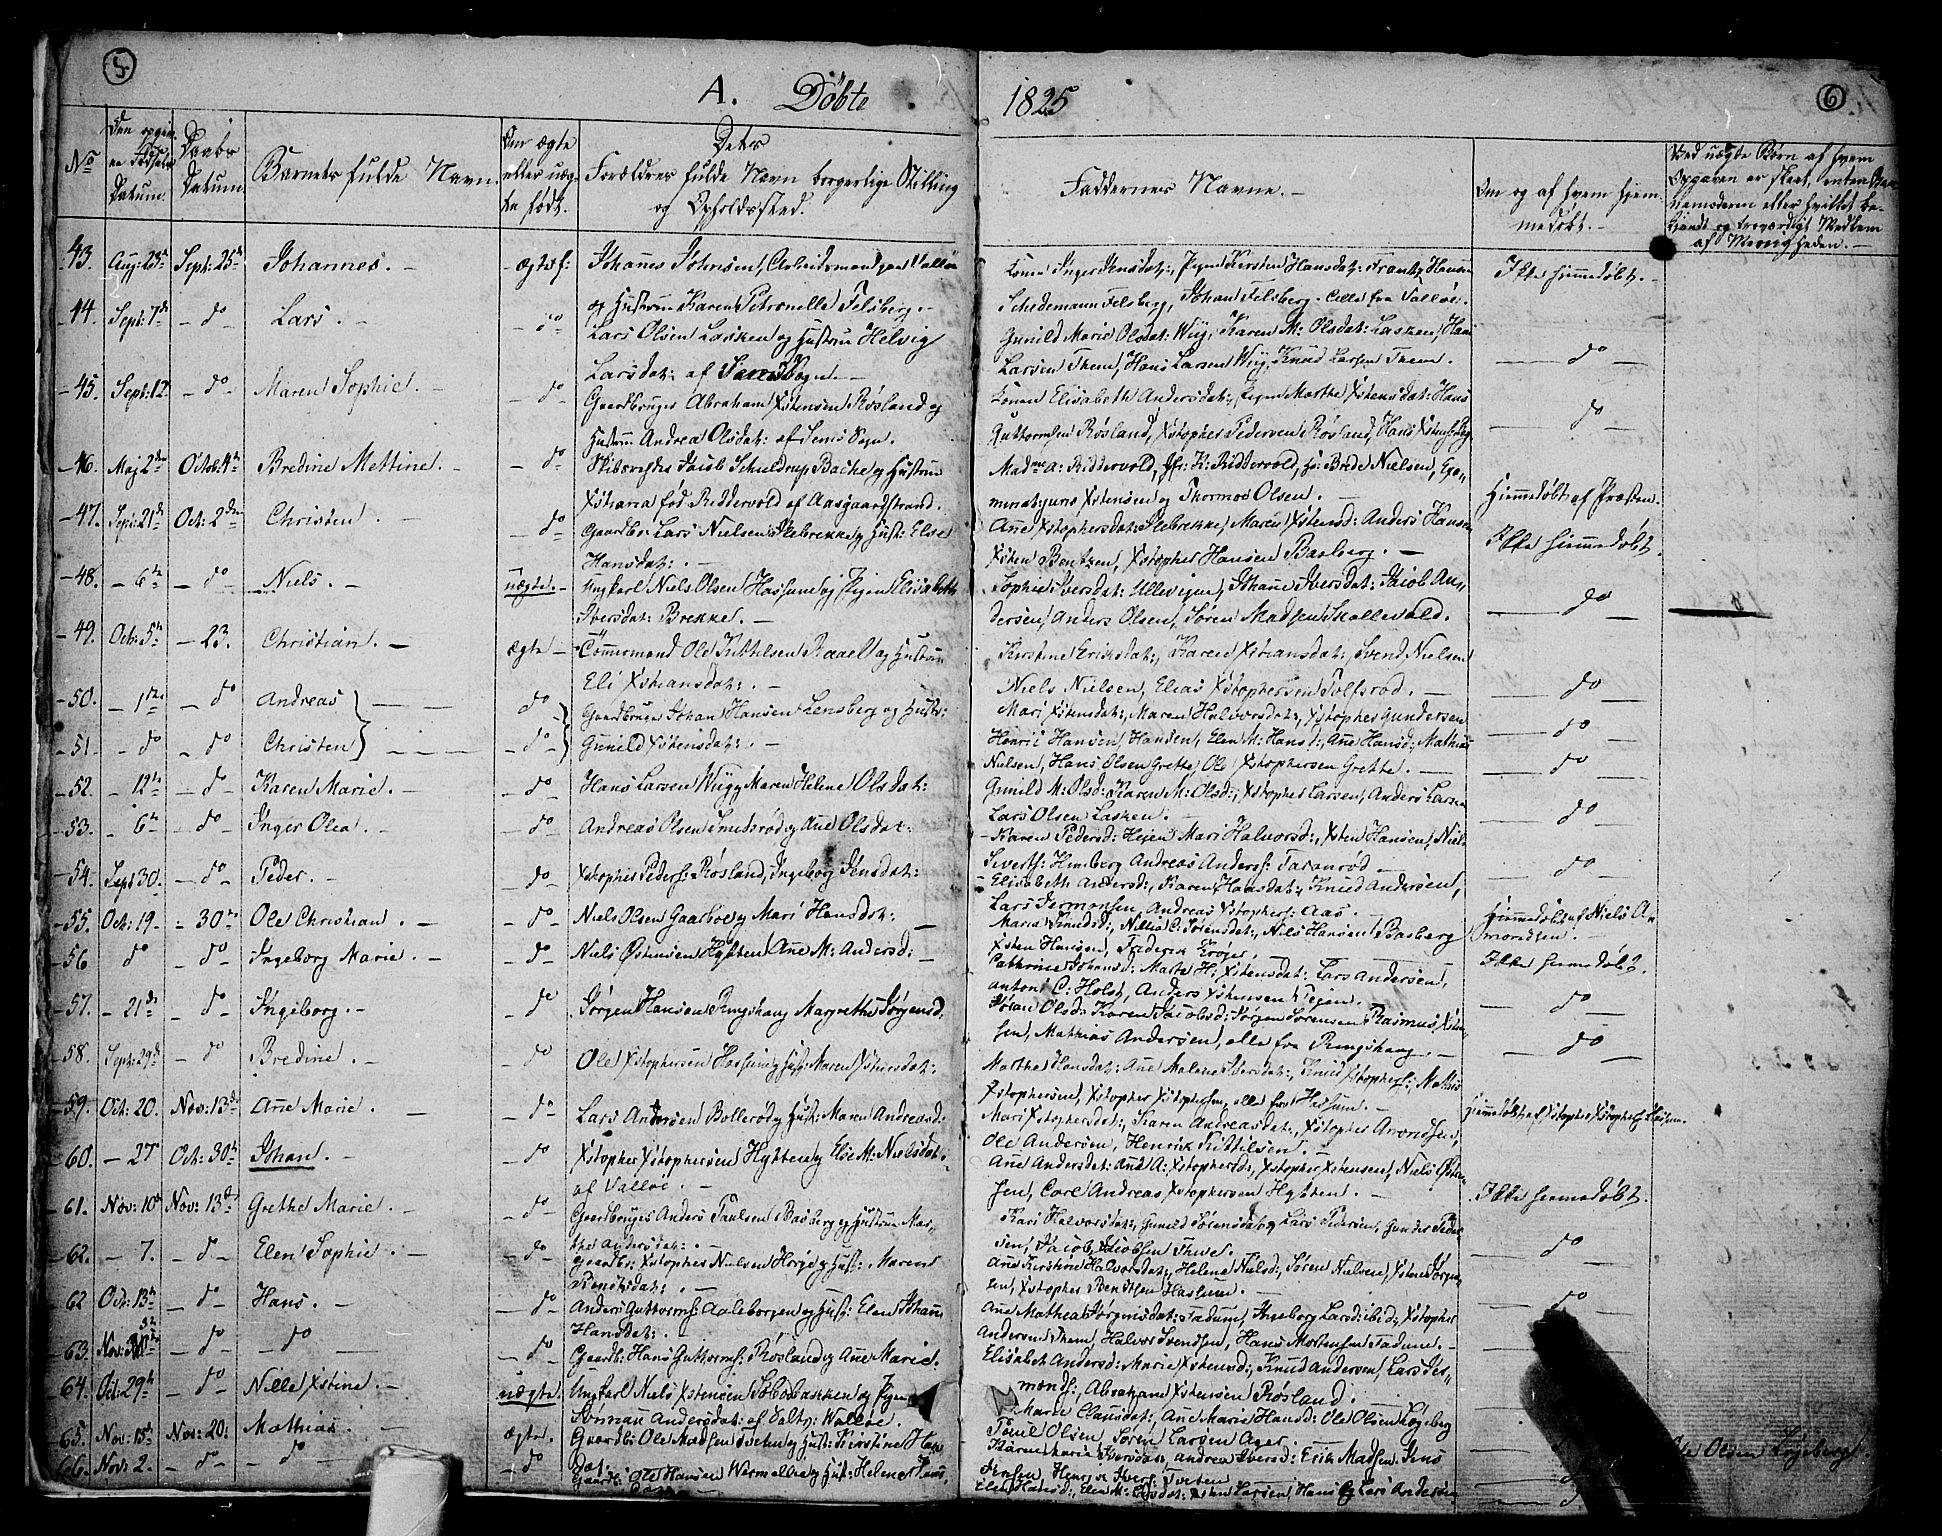 5.
6
A. Døbte
1825
No
Den opgivne Fødsels Datum.
Daabs Datum.
Barnets fulde Navn.
Om ægte eller uægte født.
Deres Forældres fulde Navn borgerlige Stilling og Opholdssted.
Faddernes Navne.
Om og af hvem hjemmedøbt.
Ved uægte Børn af hvem Opgaven er skeet, enten
43. Aug: 23 Sept: 25 Johannes. ægtef: Johanes Johnsen, Arbeidsmand paa Valløe
og Hustrue Karen Petronelle Felsberg.
Konen Inger Jensdat:, Pigen Kirsten Hansdat: Frantz Hansen
Schedemann Felsberg, Johan Felsberg. alle fra Valløe.
Ikke hiemmedøbt.
44. Sept: 7de do Lars. do Lars Olsen Lasken og Hustrue Helvig
Larsdat: af Sogn.
Gunild Marie Olsdat: Wiig, Karen M: Olsdat: Lasken, Hans
Larsen Them, Hans Larsen Wiig, Knud Larsen Them.
do
45. Sept: 12 do Maren Sophie. do Gaardbruger Abraham Xstensen Røsland og
Hustru Andrea Olsdat: af Sems Sogn.
Konen Elisabeth Andersdat:, Pigen Marthe Xstensdat: Hans
Guttormsen Røsland, Xstopher Pedersen Røsland, Hans
do
46. Maj 2den Octob: 4de Bredine Mettine. do Skibsreder Jacob Schuldrup Bache og Hustrue
Xstiania fød Riddervold af Aasgaardstrand.
Madme A: Riddervold, Jfr: K: Riddervold, Hr: Brede Nielsen,
Xstensen og Thormod Olsen.
Hiemmedøbt af Præsten.
47. Sept: 21de Oct: 2den Christen. do Gaardbr: Lars Nielsen Skebrekke og Hust: Else
Hansdat:.
Ane Xstophersdat: Skebrekke, Maren Xstensd: Anders Hansen
Xsten Bentzen, Xstopher Hansen Basberg.
Ikke hiemmedøbt.
48. 6te do Niels. uægte. Ungkarl Niels Olsen Hassum og Pigen Elisabeth
Iversdat: Brekke.
Sophie Iversdat: Ullevigen, Johane Iversdat: Jacob An-
dersen, Anders Olsen, Søren Madsen Skallevold.
do
49. Oct: 5te 23. Christian. ægte Tømmermand Ole Kittilsen Raael og Hustrue
Eli Xstiansdat:.
Kirstine Eriksdat:, Karen Xstiansdat:, Svend Nielsen
Niels Nielsen, Elias Xstophersen Tolfsrød.
do
50. 1ste do Andreas do
Gaardbruger Johan Hansen Lensberg og Hustr:
Gunild Xstensdat:.
Mari Xstensdat:, Maren Halvorsdat:, Xstopher Gundersen
do
51. do do Christen do
Henric Hansen, Hansen, Elen M: Hansd:, Ane Hansd:, Mathias
Nielsen, Hans Olsen Grette, Ole Xstophersen Grette.
do
52. 12te do Karen Marie. do Hans Larsen Wiig og Maren Helene Olsdat:
Gunild M: Olsd: Karen M: Olsd:, Xstopher Larsen, Anders Larsen
Lars Olsen Lasken.
do
53. 6te do Inger Olea. do Andreas Olsen Smidsrød og Ane Olsdat:
Karen Pedersd: Heien, Mari Halvorsd:, Xsten Hansen, Niels
Siverts: Himberg Andreas Anders: Taranrød
do
54. Sept: 30. do Peder. do Xstopher Peders: Røsland, Ingeborg Jensdat:
Elisabeth Andersd:, Karen Hansdat:, Knud Andersen,
Lars Jermonsen, Andreas Xstophers: Aas.
55. Oct: 19. 30te Ole Christian. do Niels Olsen Gaarboe og Mari Hansdat:
Maria Knudsd:, Nillia C: Sørensdat:, Niels Hansen Basberg
Xsten Hansen, Frederik Krøjer.
Hiemmedøbt af Niels A-
monsen.
56 do do Ingeborg Marie. do Niels Østensen Hytten, Ane M: Andersd:
Cathrine Johansd: Marte H: Xstensdat: Lars Andersen,
Antoni C: Holst, Anders Xstensen Teien.
Ikke hiemmedøbt.
57. 21de do Ingeborg. do Jørgen Hansen Ringshaug Margrethe Jørgensd.
Olsd: Karen Jacobsd: Jørgen Sørensen, Rasmus Xsten-
sen, Mathias Andersen, alle fra Ringshaug.
do
58. Sept: 29de do Bredine. do Ole Xstophersen Hassum og Hust: Maren Iversdat:
Marthe Hansdat: Ane Malene Iversdat:, Knud Xstophers:, Mathias
Xstophersen, Xstopher Xstophersen, alle fra Hassum.
do
59. Oct: 20. Nov: 13de Ane Marie. do Lars Andersen Bollerød og Hust: Maren Andreasd:
Mari Xstophersdat:, Karen Andreasdat:, Xstopher Amondsen,
Ole Andersen, Henrik Kittilsen.
Hiemmedøbt af Xstopher Xstophers: Hassum.
60. 27 Oct: 30te Johan. do Xstopher Xstophersen Hytten og Else M: Nielsdat:
af Valløe.
Ane Andersdat: Ane A: Xstophersd:, Xstopher Xstensen, Niels Østen-
sen, Carl Andreas Xstophersen Hytten.
Ikke hiemmedøbt.
61. Nov: 10de Nov: 13de Grethe Marie. do Gaardbruger Anders Paulsen Basberg og Hustrue Mar-
the Andersdat:.
Kari Halvorsdat:, Gunild Sørensdat: og Lars Pedersen, Gunder Peder-
sen, Jacob Jacobsen Thue.
do
62. 7. do Elen Sophie. do Gaardbr: Xstopher Nielsen Horje og Hust: Maren
Bendtsdat:.
Ane Kirstine Halvorsdat:, Helene Nielsd:, Søren Nielsen, Xsten Jørgen-
sen, Xstopher Bendtsen Hassum.
62 Oct: 13de do Hans. do Anders Guttorms: Aaleborgen og Hust: Elen Johan
Hansdat:.
Ane Mathea Jørgensdat: Fadum, Ingeborg Larsd: ibid:, Xstopher
Andersen Them, Halvor Svendsen, Hans Mortensen Fadum.
do
63. Nov: do do do Gaardb: Hans Guttorms: Røsland og Ane Marie.
Elisabet Andersd: Marie Xstensd:, Knud Andersen, Lars Jer-
monds:, Abraham Xstensen Røsland.
64. Oct: 29de do Nille Xstine. uægte Ungkarl Niels Xstensen og Pigen
Andersdat: af Valløe.
Marie Clausdat:, Ane Marie Hansd: Ole Olsen Løgeberg
Poul Olsen, Søren Larsen Ager.
Ole Olsen Løgeberg
65. Nov: 15de Nov: 20: Mathias. ægte. Gaardb: Ole Madsen Tveten og Hust: Kirstine Han
dat:
Karen Maria Iversdat:, Andrea Iversd: Erik Madsen, Jens
Jensen, Henrik Ivers: Tveten
66. Nov: 2. do do do Gaardb: Ole Hansen Wermelle og Hust: Helene Hans
Elen Hansd:, Elen M: Olsdat: Xsten Larsen, Hans og Lars Andersen